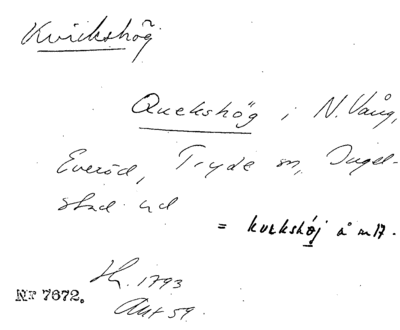 Kvickshög
Queckshög i N. Vång,
Everöd, Tryde sn, Ingel-
stad hd
= kvekshöj å m17.
1793
Nr 7672.
Akt 59.